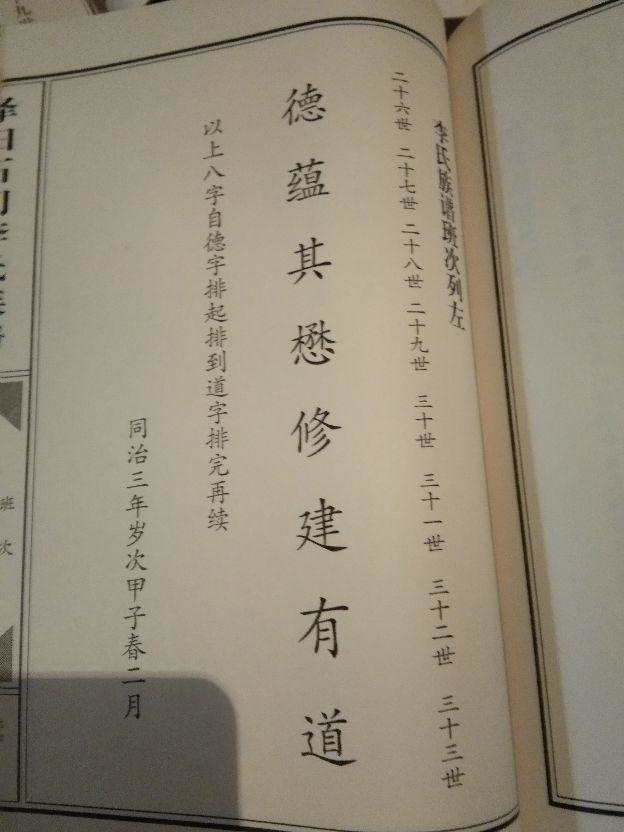 李氏族谱班次列左
二十六世 二十七世 二十八世 二十九世 三十世 三十一世 三十二世 三十三世
德蕴其懋修建有道
以上八字自德字排起排到道字排完再续
同治三年岁次甲子春二月
班次